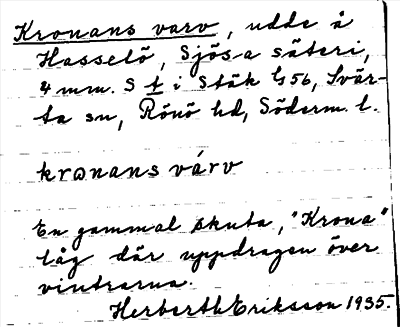 Kronans varv, udde å
Hasselö, Sjösa säteri,
4 mm. S t i Stäk G56, Svär-
ta sn, Rönö hd, Söderm. l.
krωnans várv
En gammal skuta, "Krona"
låg där uppdragen över
vintrarna.
Herberth Eriksson 1935